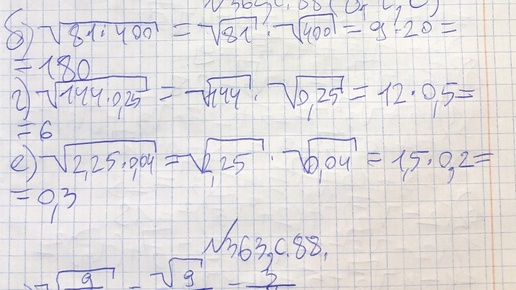 №363,с.88 (б, г, е)
б) √81·400 = √81 · √400 = 9·20 =
= 180
г) √144·0,25 = √144 · √0,25 = 12·0,5 =
= 6
е) √2,25·0,04 = √2,25 · √0,04 = 1,5·0,2 =
= 0,3
№363,с.88.
√9 = √9 = 3